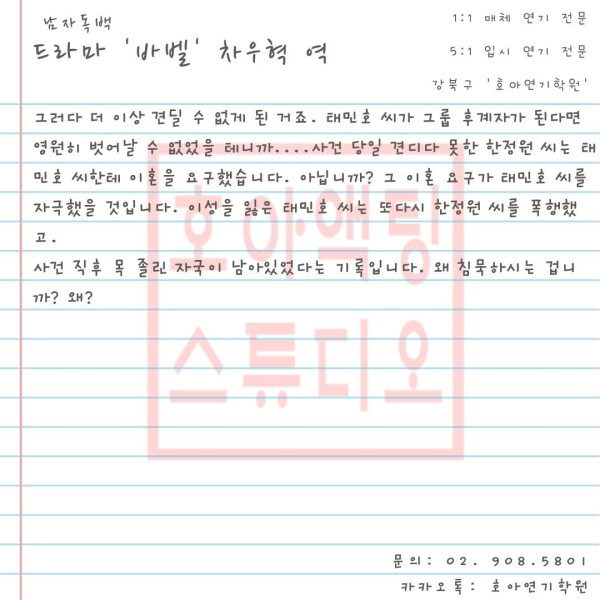 남자독백
드라마 '바벨' 차우혁 역
1:1 매체 연기 전문
5:1 입시 연기 전문
강북구 '호아연기학원'
그러다 더 이상 견딜 수 없게 된 거죠. 태민호 씨가 그룹 후계자가 된다면
영원히 벗어날 수 없었을 테니까....사건 당일 견디다 못한 한정원 씨는 태
민호 씨한테 이혼을 요구했습니다. 아닙니까? 그 이혼 요구가 태민호 씨를
자극했을 것입니다. 이성을 잃은 태민호 씨는 또다시 한정원 씨를 폭행했
고.
사건 직후 목 졸린 자국이 남아있었다는 기록입니다. 왜 침묵하시는 겁니
까? 왜?
호아액팅
스튜디오
문의: 02. 908.5801
카카오톡: 호아연기학원